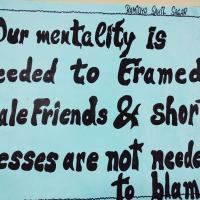 Our mentality is
eeded to Framed
ale Friends & short
esses are not neede
to blam